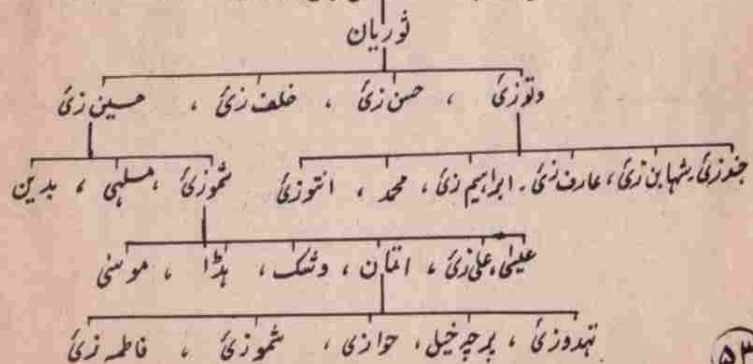 ثوریان
وتوزئ ، حسن زئ ، خلف زئ ، حسین زئ
جندزئ ، شہابن زئ ، عارف زئ ۔ ابراہیم زئ ، محمد ، انتوزئ
شموزئ ، مسلہی ، بدین
عیسٰی ، علی زئ ، اتمان ، وشک ، ہڈا ، موسٰی
تہدوزئ ، پرچہ خیل ، حوازی ، شموزئ ، فاطمہ زئ